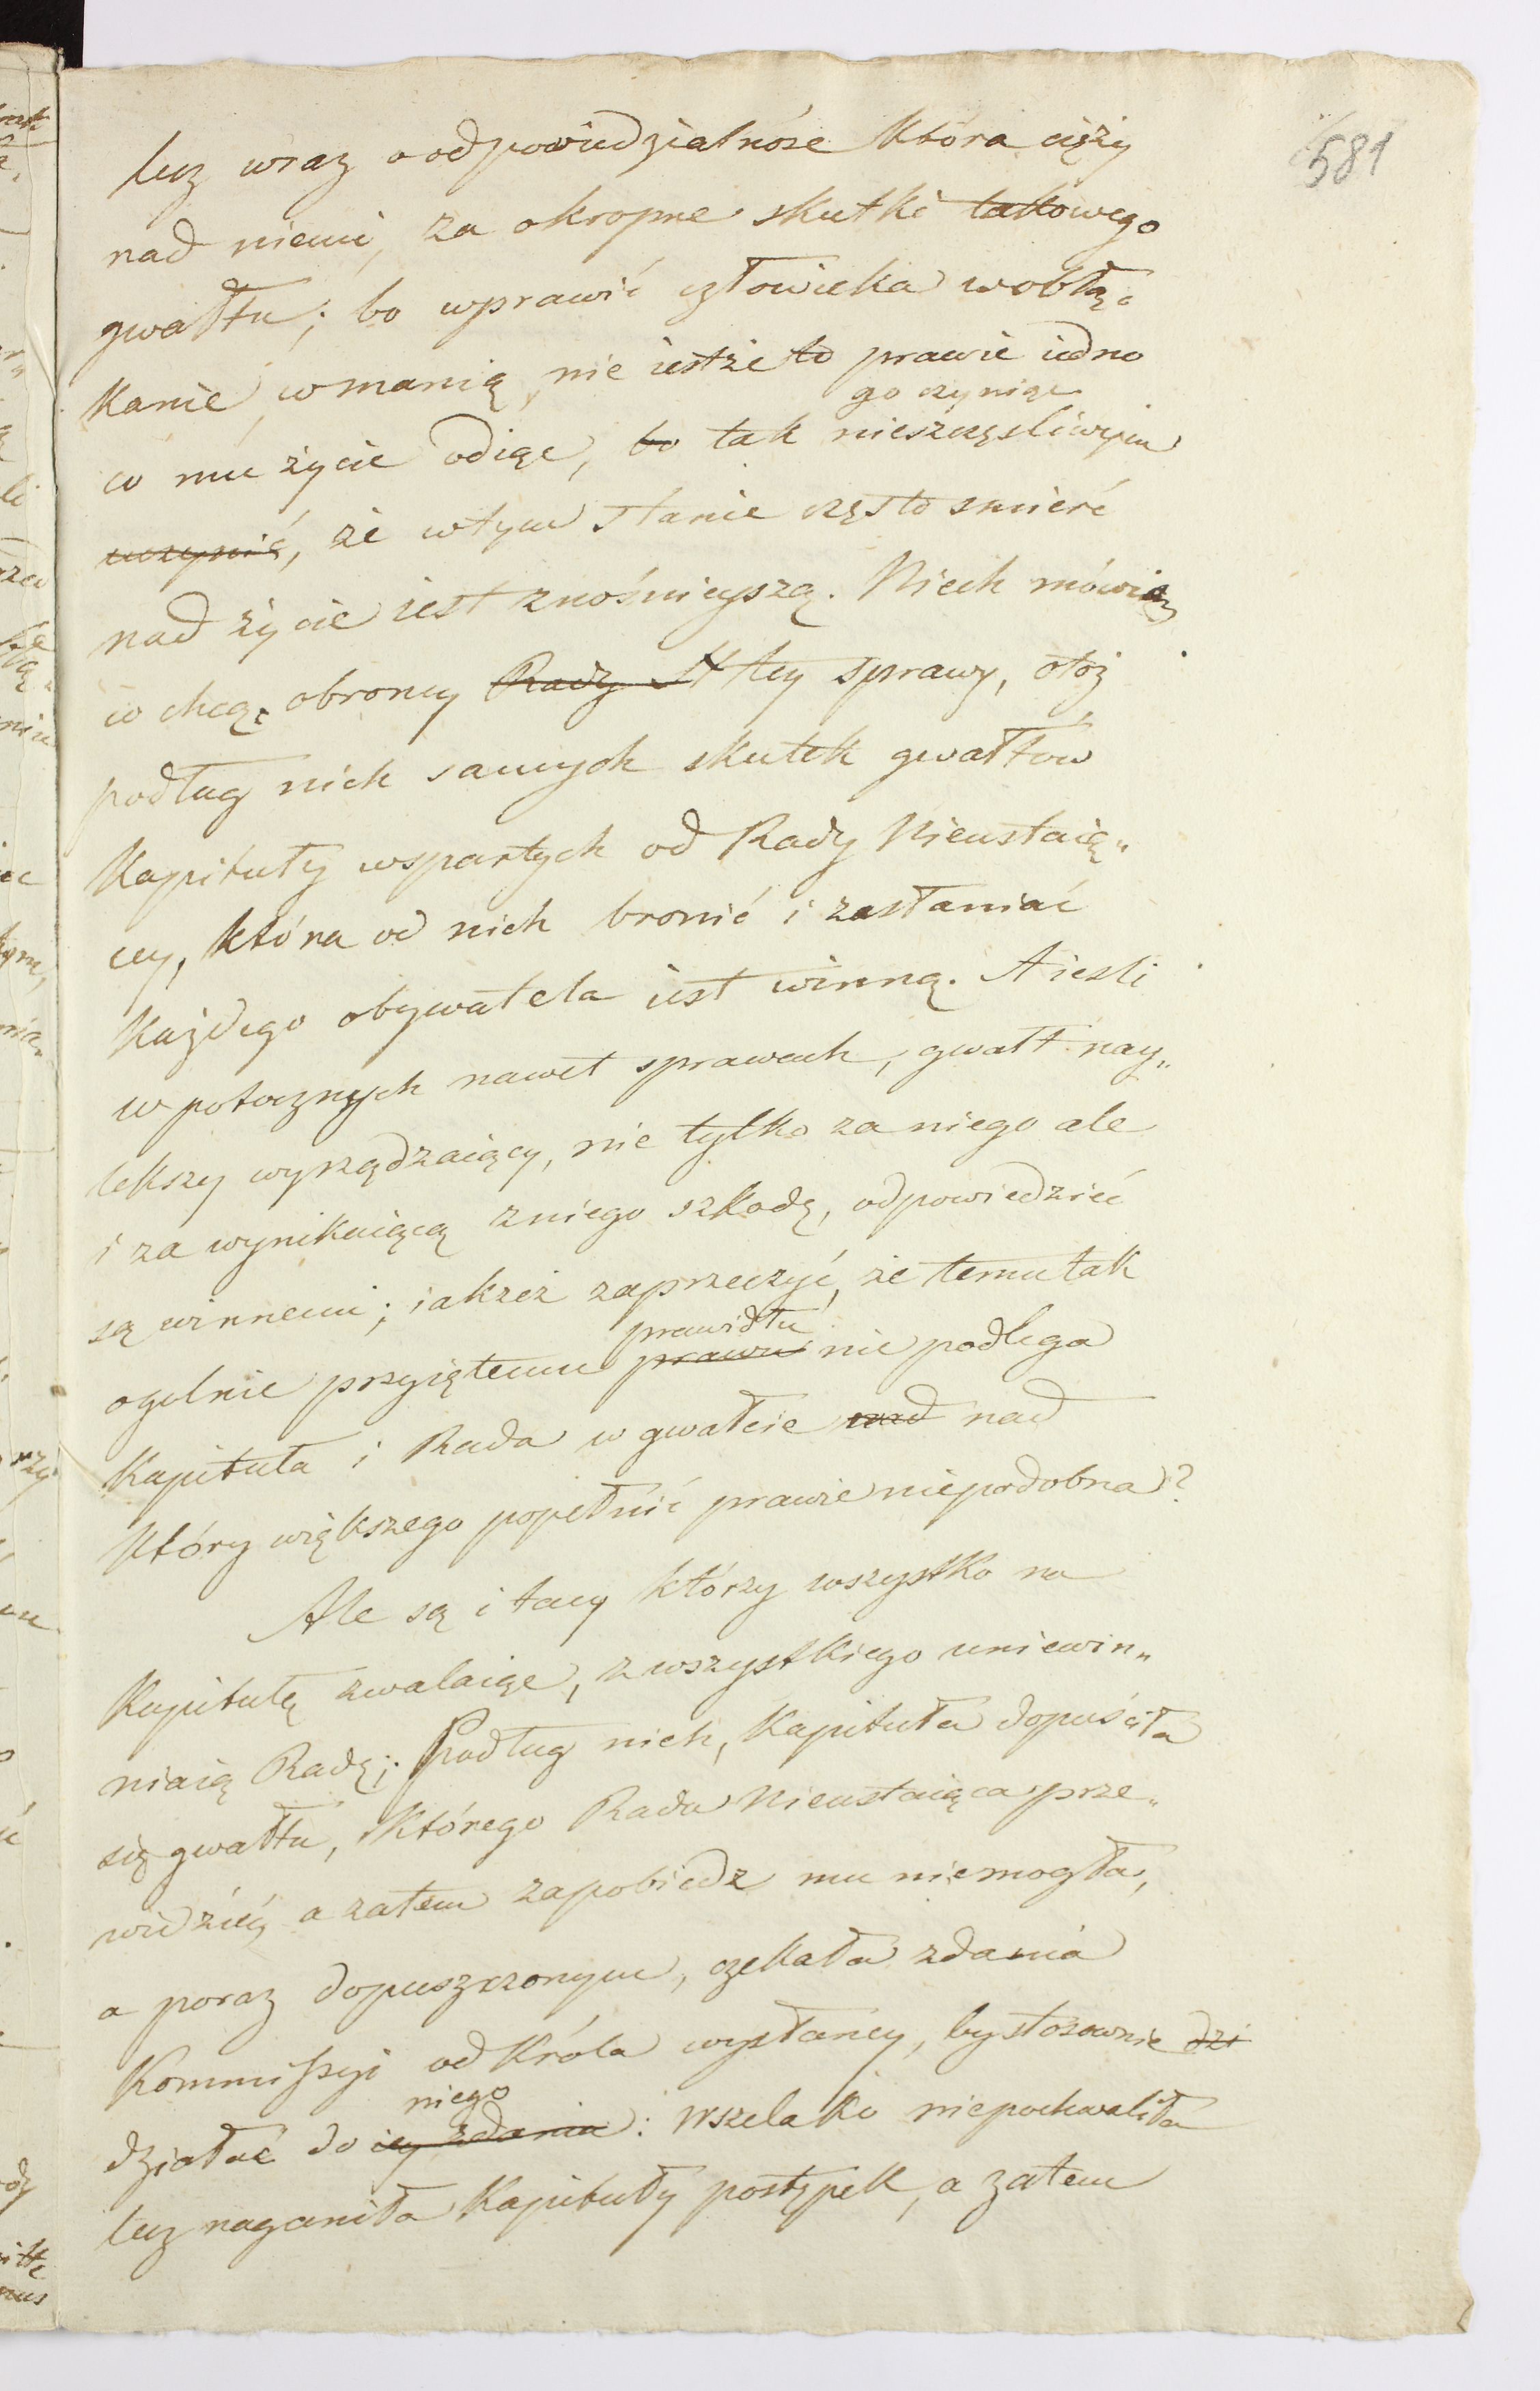 581
lecz wraz o odpowiedzialnośc która cięży
nad niemi, za okropne skutki takowego
gwałtu; bo wprawić człowieka w obłą-
kanie, w manią, nie iestże to prawie iedno
go czyniąc
co mu życie odiąc, to tak nieszczęsliwym
uczynić, że w tym stanie często smierć
nad życie iest znośnieyszą. Niech mówią
co chcą, obroncy Rady N tey sprawy, otoż
podług nich samych skutek gwałtow
Kapituły wspartych od Rady Nieustaią„
cey, która od nich bronić i zasłaniać
Każdego obywatela iest winną. A iesli
w potocznych nawet sprawach, gwałt nay„
lekszy wyrządzaiący, nie tylko za niego ale
i za wynikaiącą z niego szkodę, odpowiedzieć
są winnemi; iakżeż zaprzeczyć, że temu tak
prawidłu
ogolnie przyiętemu prawu nie podlega
Kapituła i Rada w gwałcie nad nad
który większego popełnić prawie niepodobna?
Ale są i tacy którzy wszystko na
Kapitułę zwalaiąc, z wszystkiego uniewin„
niaią Radę; Podług nich, Kapituła dopuściła
się gwałtu, którego Rada Nieustaiąca prze„
widzieć, a zatem zapobiedz mu niemogła,
a po raz dopuszczonym, czekała zdania
Kommissyi od Króla wysłaney, by stosownie dzi
niego
działać do iey zdania: Wszelako niepochwaliła
lecz naganiła Kapituły postępek, a zatem